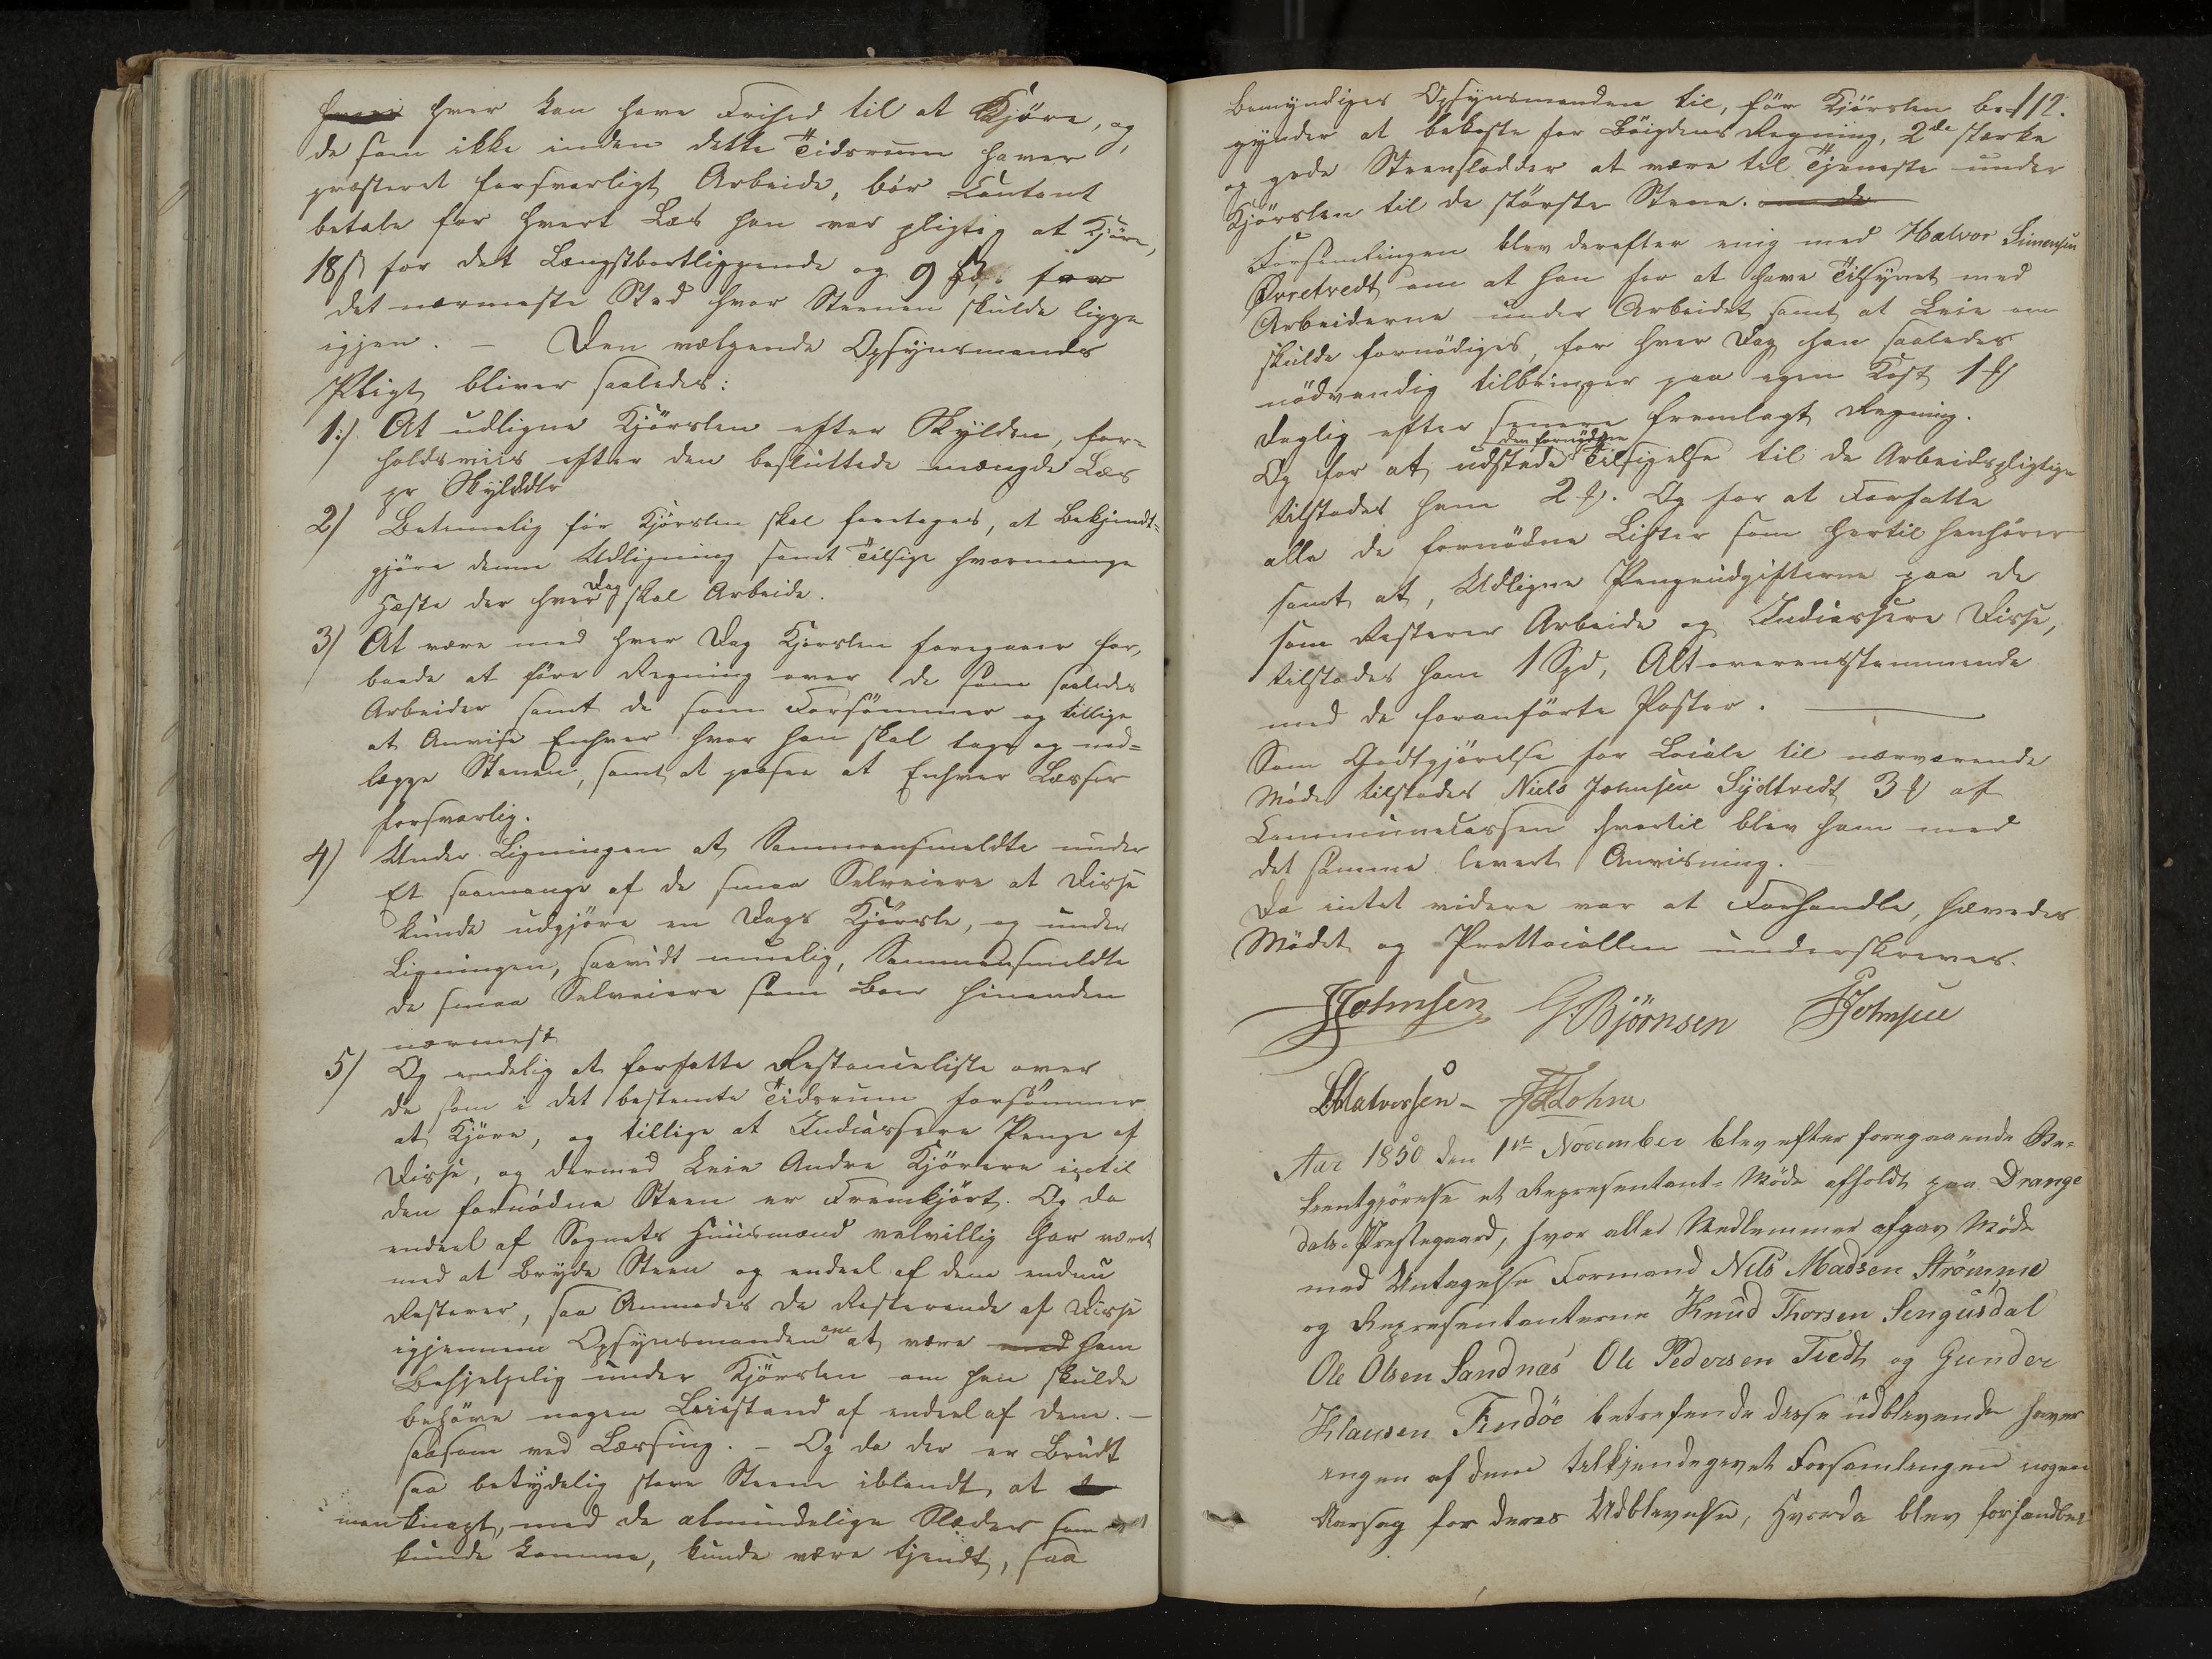 hver kan have Frihed til at Kjöre, og
de som ikke inden dette Tidsrum haver
præsteret forsvarligt Arbeide, bör Contant
betale for hvert Læs han var pligtig at Kjöre,
18 ß for det Længstbortliggende og 9 ß. for
det nærmeste Sted hvor Steenen skulde ligge
igjen. – Den vælgende Opsynsmands
Pligt bliver saaledes:
1:) At udligne Kjörslen efter Skylden, for-
holdsviis efter den besluttede mængde Læs
pr Skylddlr
2) Betimelig för Kjörslen skal foretages, at Bekjendt-
gjöre denne Udligning samt Tilsige hvormange
Heste der hver Dag skal Arbeide.
3) At være med hver Dag Kjörslen foregaaer for,
baade at före Regning over de som saaledes
Arbeider samt de som Forsömmer og tillige
at Anvise Enhver hvor han skal tage og ned-
lægge Stenen, samt at paasee at Enhver Læsser
forsvarlig.
4) Under Ligningen at Sammensmeldte under
Et saamange af de smaa Selveiere at Disse
kunde udgjöre en Dags Kjörsle, og under
Ligningen, saavidt muelig, Sammensmeldte
de smaa Selveiere som Boer hinanden
nærmest
5) Og endelig at forfatte Restanceliste over
de som i det bestemte Tidsrum forsömmer
at Kjöre, og tillige at Indcassere Penge af
Disse, og dermed Leie Andre Kjörere indtil
den fornödne Steen er Fremkjört. Og da
endeel af Sognets Huusmænd velvillig har været
med at Bryde Steen og endeel af dem endnu
Resterer, saa Anmodes de Resterende af Disse
igjennem Opsynsmanden om at være med ham
Behjelpelig under Kjörslen om han skulde
behöve nogen Beistand af endeel af dem. –
saasom ved Læssing. – Og da der er Brudt
saa betydelig store Stene iblandt, at
man knapt, med de almindelige Slæder som
kunde komme, kunde være tjendt, saa
112.
bemyndiges Opsynsmanden til, för Kjörslen be-
gynder at bekoste for Böigdens Regning, 2de stærke
og gode Steenslædder at være til Tjeneste under
Kjörslen til de störste Stene.
Forsamlingen blev derefter enig med Halvor Simensen
Övretvedt om at han for at have Tilsynet med
Arbeiderne under Arbeidet samt at Leie om
skulde fornödiges, for hver Dag han saaledes
nödvendig tilbringer paa egen Kost 1 ß
daglig efter senere fremlagt Regning.
Og for at udstede den fornödne Tilsigelse til de Arbeidspligtige
tilstodes ham 2 ß. Og for at Forfatte
alle de fornödne Lister som hertil henhörer
samt at, Udligne Pengeudgifterne paa de
som Resterer Arbeide og Indcassere Disse,
tilstodes ham 1 Spd, Alt overensstemmende
med de foranförte Poster.
Som Godtgjörelse for Locale til nærværende
Möde tilstodes Niels Johnsen Sydtvedt 3 ß af
Communecassen hvortil blev ham med
det samme levert Anvisning.
Da intet videre var at Forhandle, hævedes
Mödet og Prottocollen underskreves.
JJohnsen GBjörnsen JJohnsen
Halvorsen –
Aar 1850 den 1ste November blev efter foregaaende Be-
kientgjörelse et Representant-Möde afholdt paa Drange
dals-Prestegaard, hvor aller Medlemmer afgav Möde
med Untagelse Formand Nils Madsen Strömme
og Representanterne Knud Thorsen Sengusdal
Ole Olsen Sandnæs Ole Pedersen Tvedt og Gunder
Klausen Findöe betrefende disse udblevende haver
ingen af dem tilkjendegivet Forsamlingen nogen
Aarsag for deres Udblevelse, Hvorda blev forhandlet